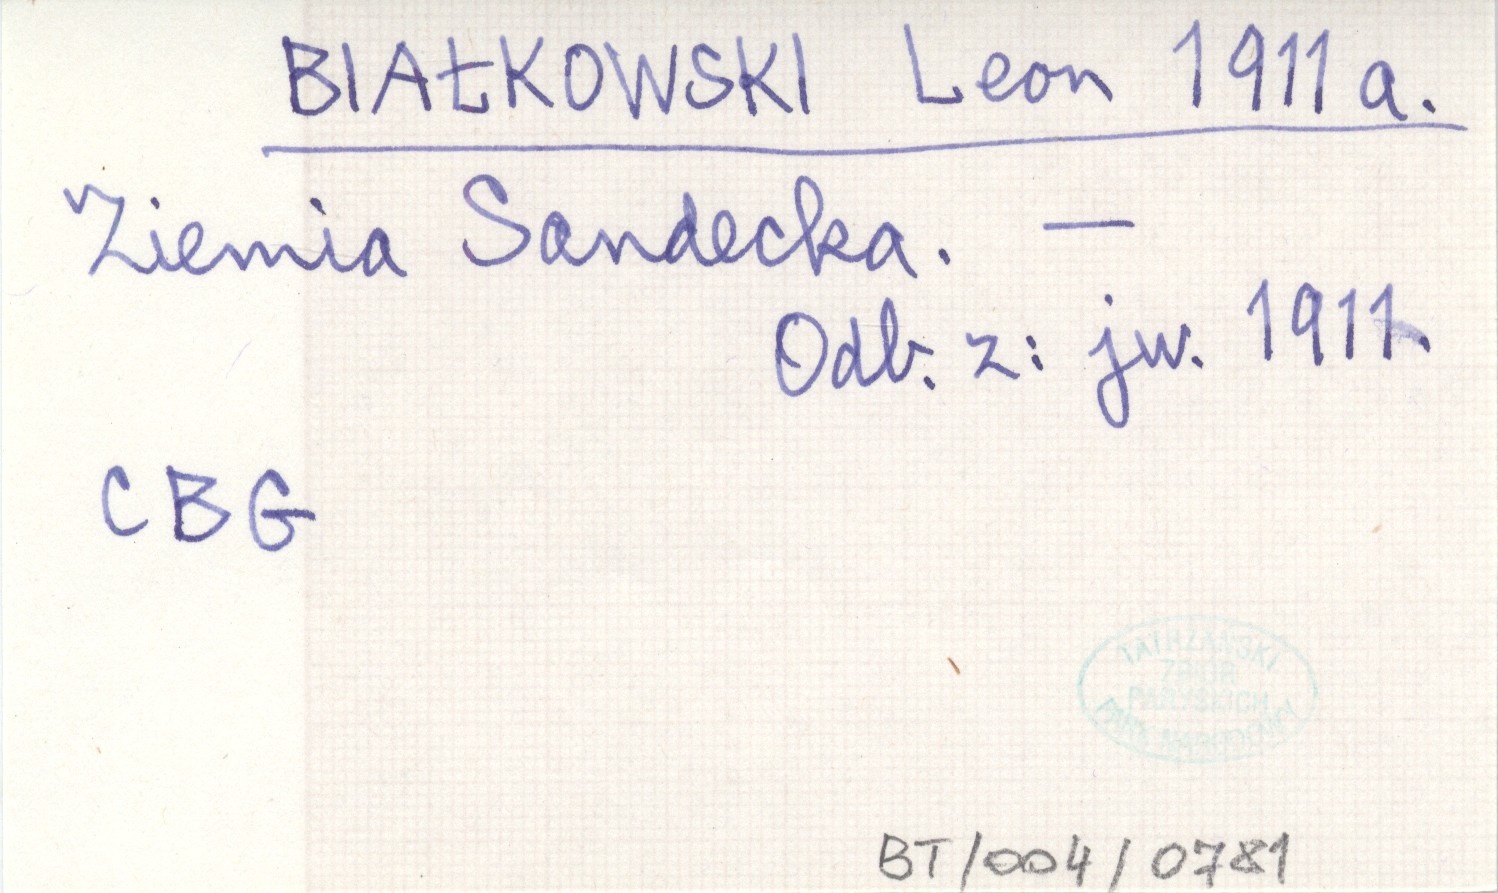 BIAŁKOWSKI Leon 1911 a.
Ziemia Sandecka. —
Odb. z: jw. 1911.
CBG
TATRZAŃSKI
ZBIÓR
PARYSKICH
PARK NARODOWY
BT/004/0781